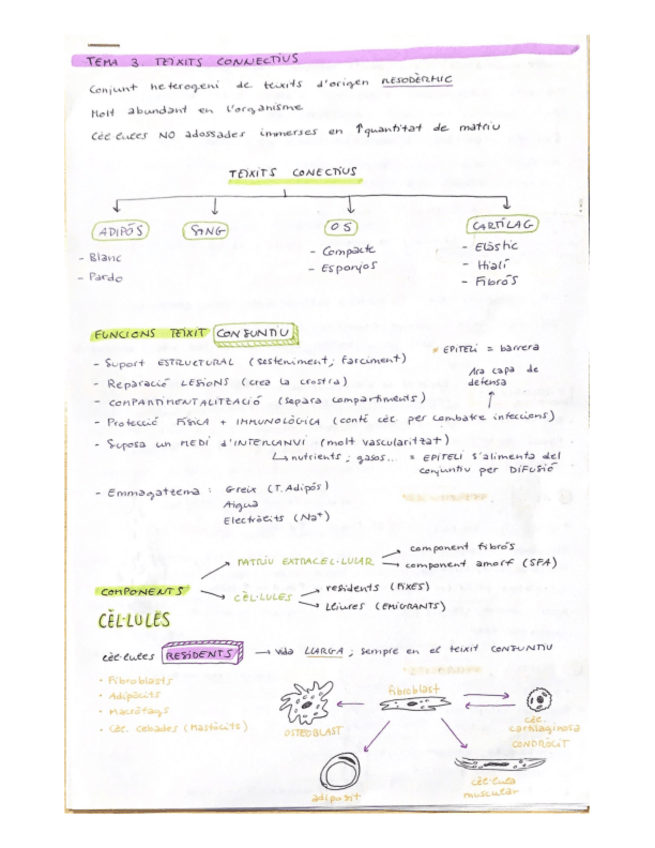 TEMA 3. TEIXITS CONNECTIUS
Conjunt heterogeni de teixits d'origen MESODÈRMIC
Molt abundant en l'organisme
Cèl·lules NO adossades immerses en ↑quantitat de matriu
TEIXITS CONECTIUS
ADIPÓS SANG OS CARTÍLAG
- Blanc
- Pardo
- Compacte
- Esponjos
- Elàstic
- Hialí
- Fibrós
FUNCIONS TEIXIT CONJUNTIU
- Suport ESTRUCTURAL (sosteniment; farciment)
* EPITELI = barrera
- Reparació LESIONS (crea la crostra)
1ra capa de defensa
- COMPARTIMENTALITZACIÓ (separa compartiments)
- Protecció FÍSICA + IMMUNOLÒGICA (conté cèl. per combatre infeccions)
- Suposa un MEDI d'INTERCANVI (molt vascularitzat)
↳ nutrients; gasos... = EPITELI s'alimenta del
conjuntiu per DIFUSIÓ
- Emmagatzema : Greix (T. Adipós)
Aigua
Electròlits (Na⁺)
COMPONENTS
MATRIU EXTRACEL·LULAR
component fibrós
component amorf (SFA)
CÈL·LULES
residents (FIXES)
Lliures (EMIGRANTS)
CÈL·LULES
cèl·lules RESIDENTS → vida LLARGA ; sempre en el teixit CONJUNTIU
• Fibroblasts
• Adipòcits
• Macròfags
• Cèl. cebades (Mastòcits)
fibroblast
OSTEOBLAST
cèl. cartilaginosa
CONDRÒCIT
adipòsit
cèl·lula muscular